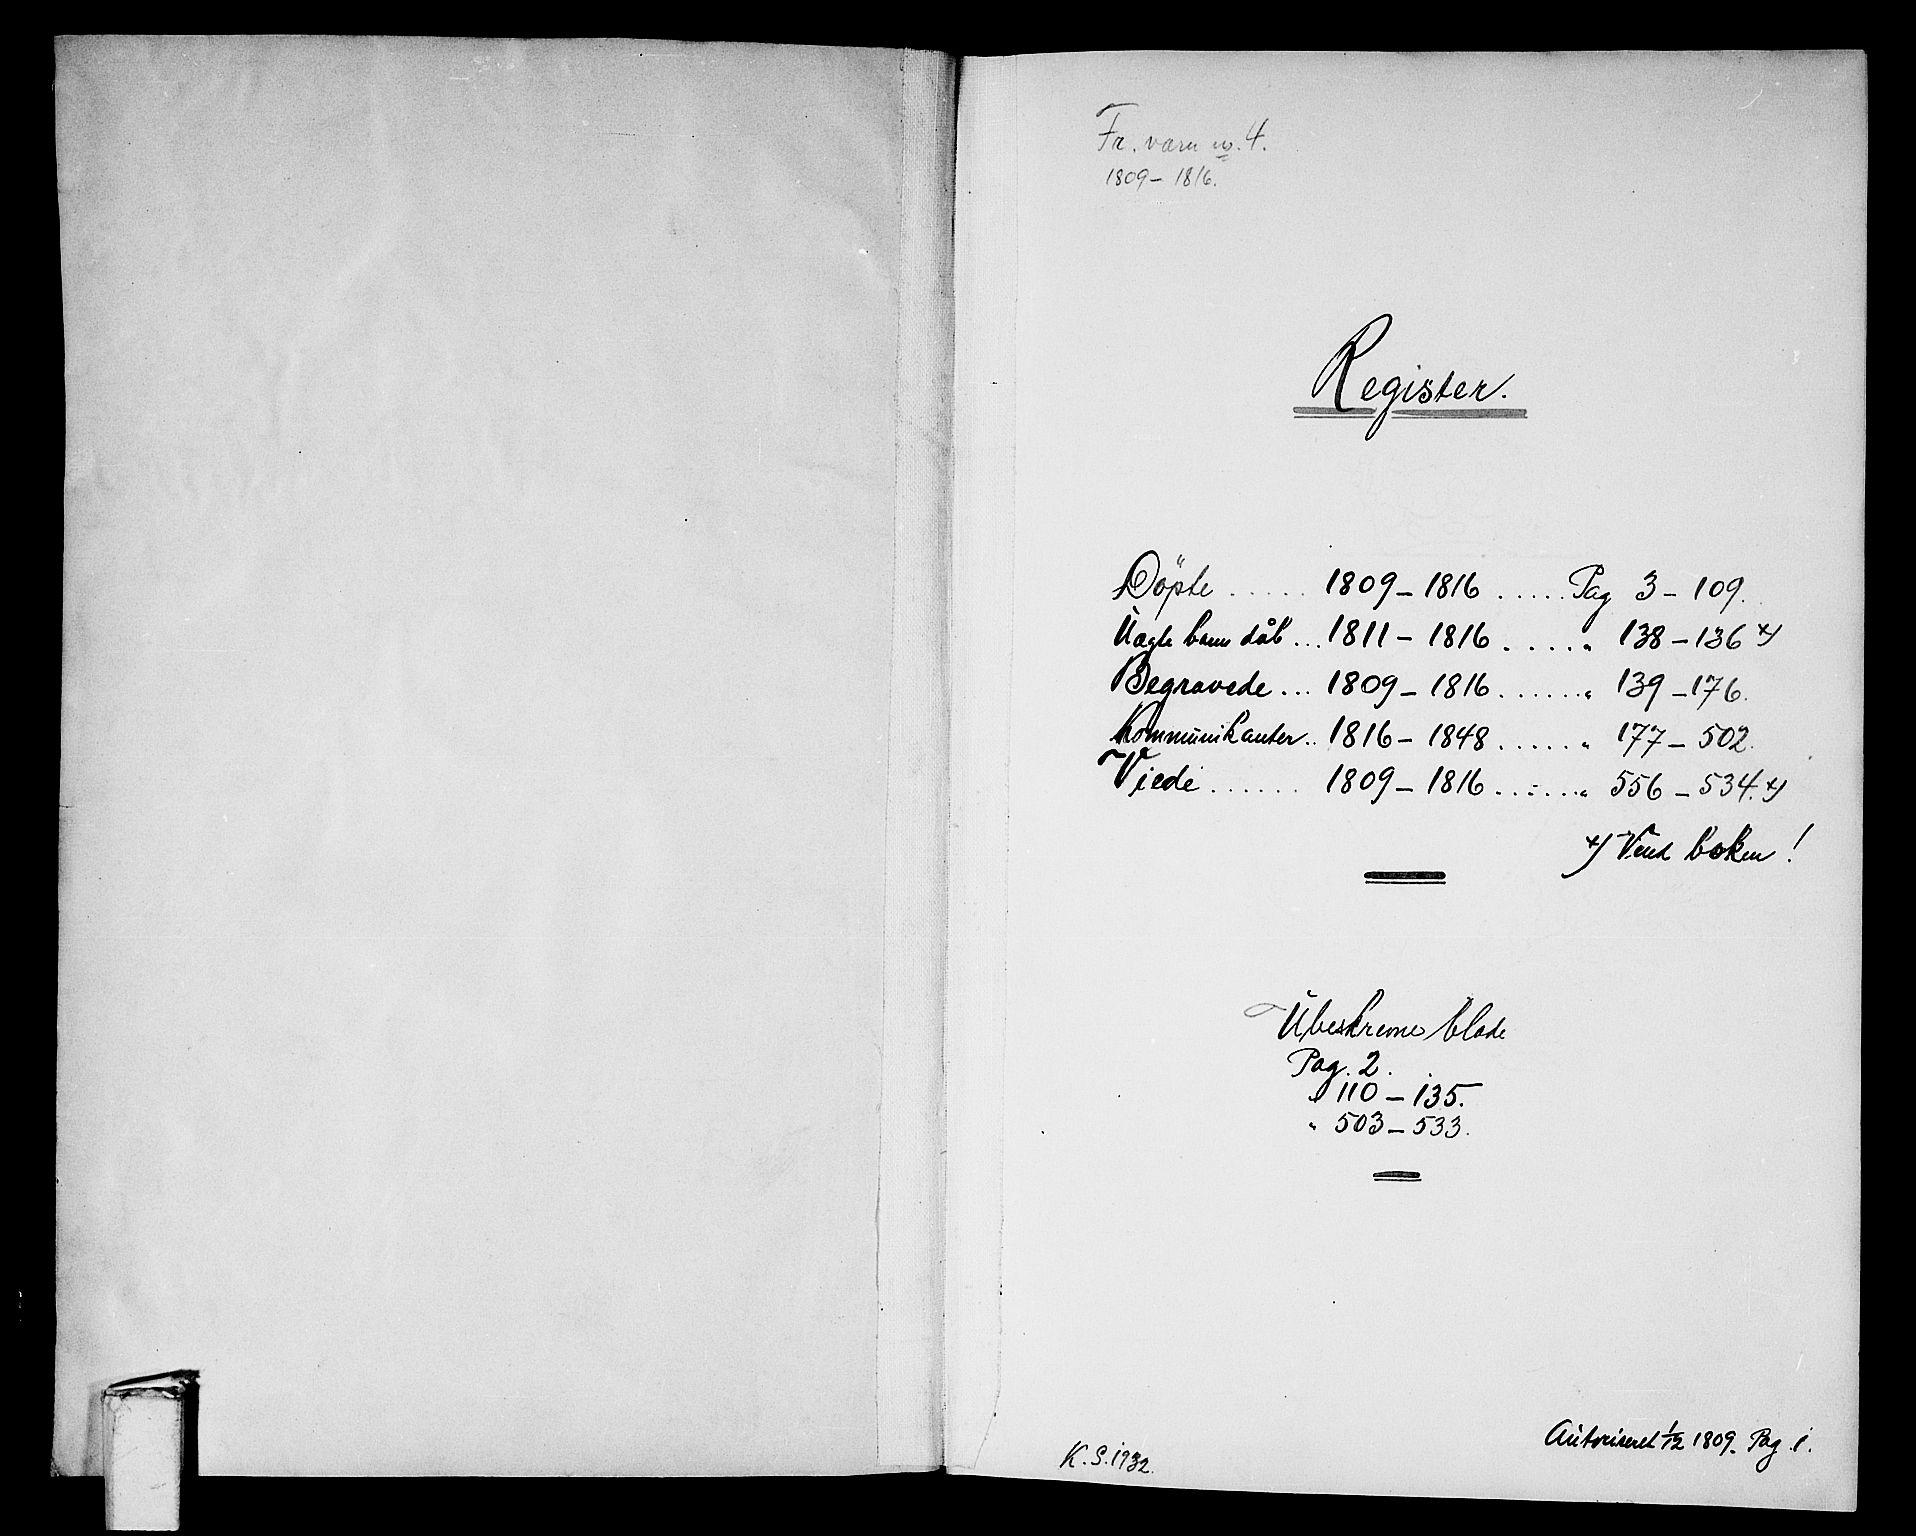 Fr. værn no. 4.
1809 – 1816.
Register.
Döpte ..... 1809 – 1816 ..... Pag 3 – 109.
Uægte barns dåb ... 1811 – 1816 ..... " 138 – 136 x)
Begravede ... 1809 – 1816 ...... " 139 – 176.
Kommunikanter .. 1816 – 1848 ...... " 177 – 502.
Viede ...... 1809 – 1816 ...... " 556 – 534. x)
x) Vend boken!
Ubeskrevne blade
Pag. 2.
" 110 – 135.
" 503 – 533.
K. S. 1932.
Autoriseret 1/12 1809. Pag. 1.